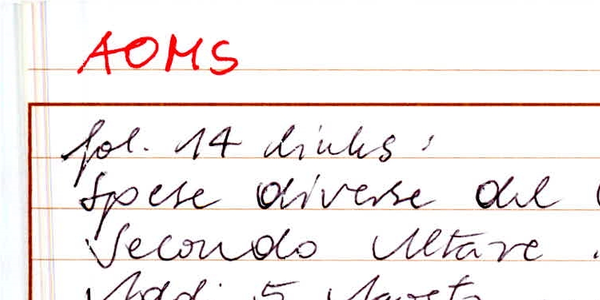 AOMS
fol. 14 links:
Spese diverse del
Secondo Altare
Addi 5